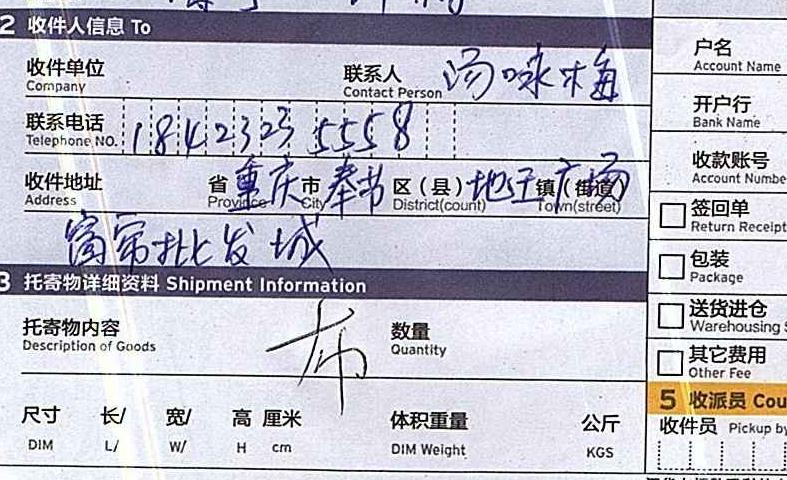 2 收件人信息 To
收件单位 联系人 汤咏梅
Company Contact Person
联系电话 18423235558
Telephone NO.
收件地址 省 重庆 市 奉节 区(县) 地王广场 镇(街道)
Address Province City District(count) Town(street)
窗帘批发城
3 托寄物详细资料 Shipment Information
托寄物内容 布 数量
Description of Goods Quantity
尺寸 长/ 宽/ 高 厘米 体积重量 公斤
DIM L/ W/ H cm DIM Weight KGS
户名
Account Name
开户行
Bank Name
收款账号
Account Numbe
签回单
Return Receipt
包装
Package
送货进仓
Warehousing
其它费用
Other Fee
5 收派员 Cou
收件员 Pickup by